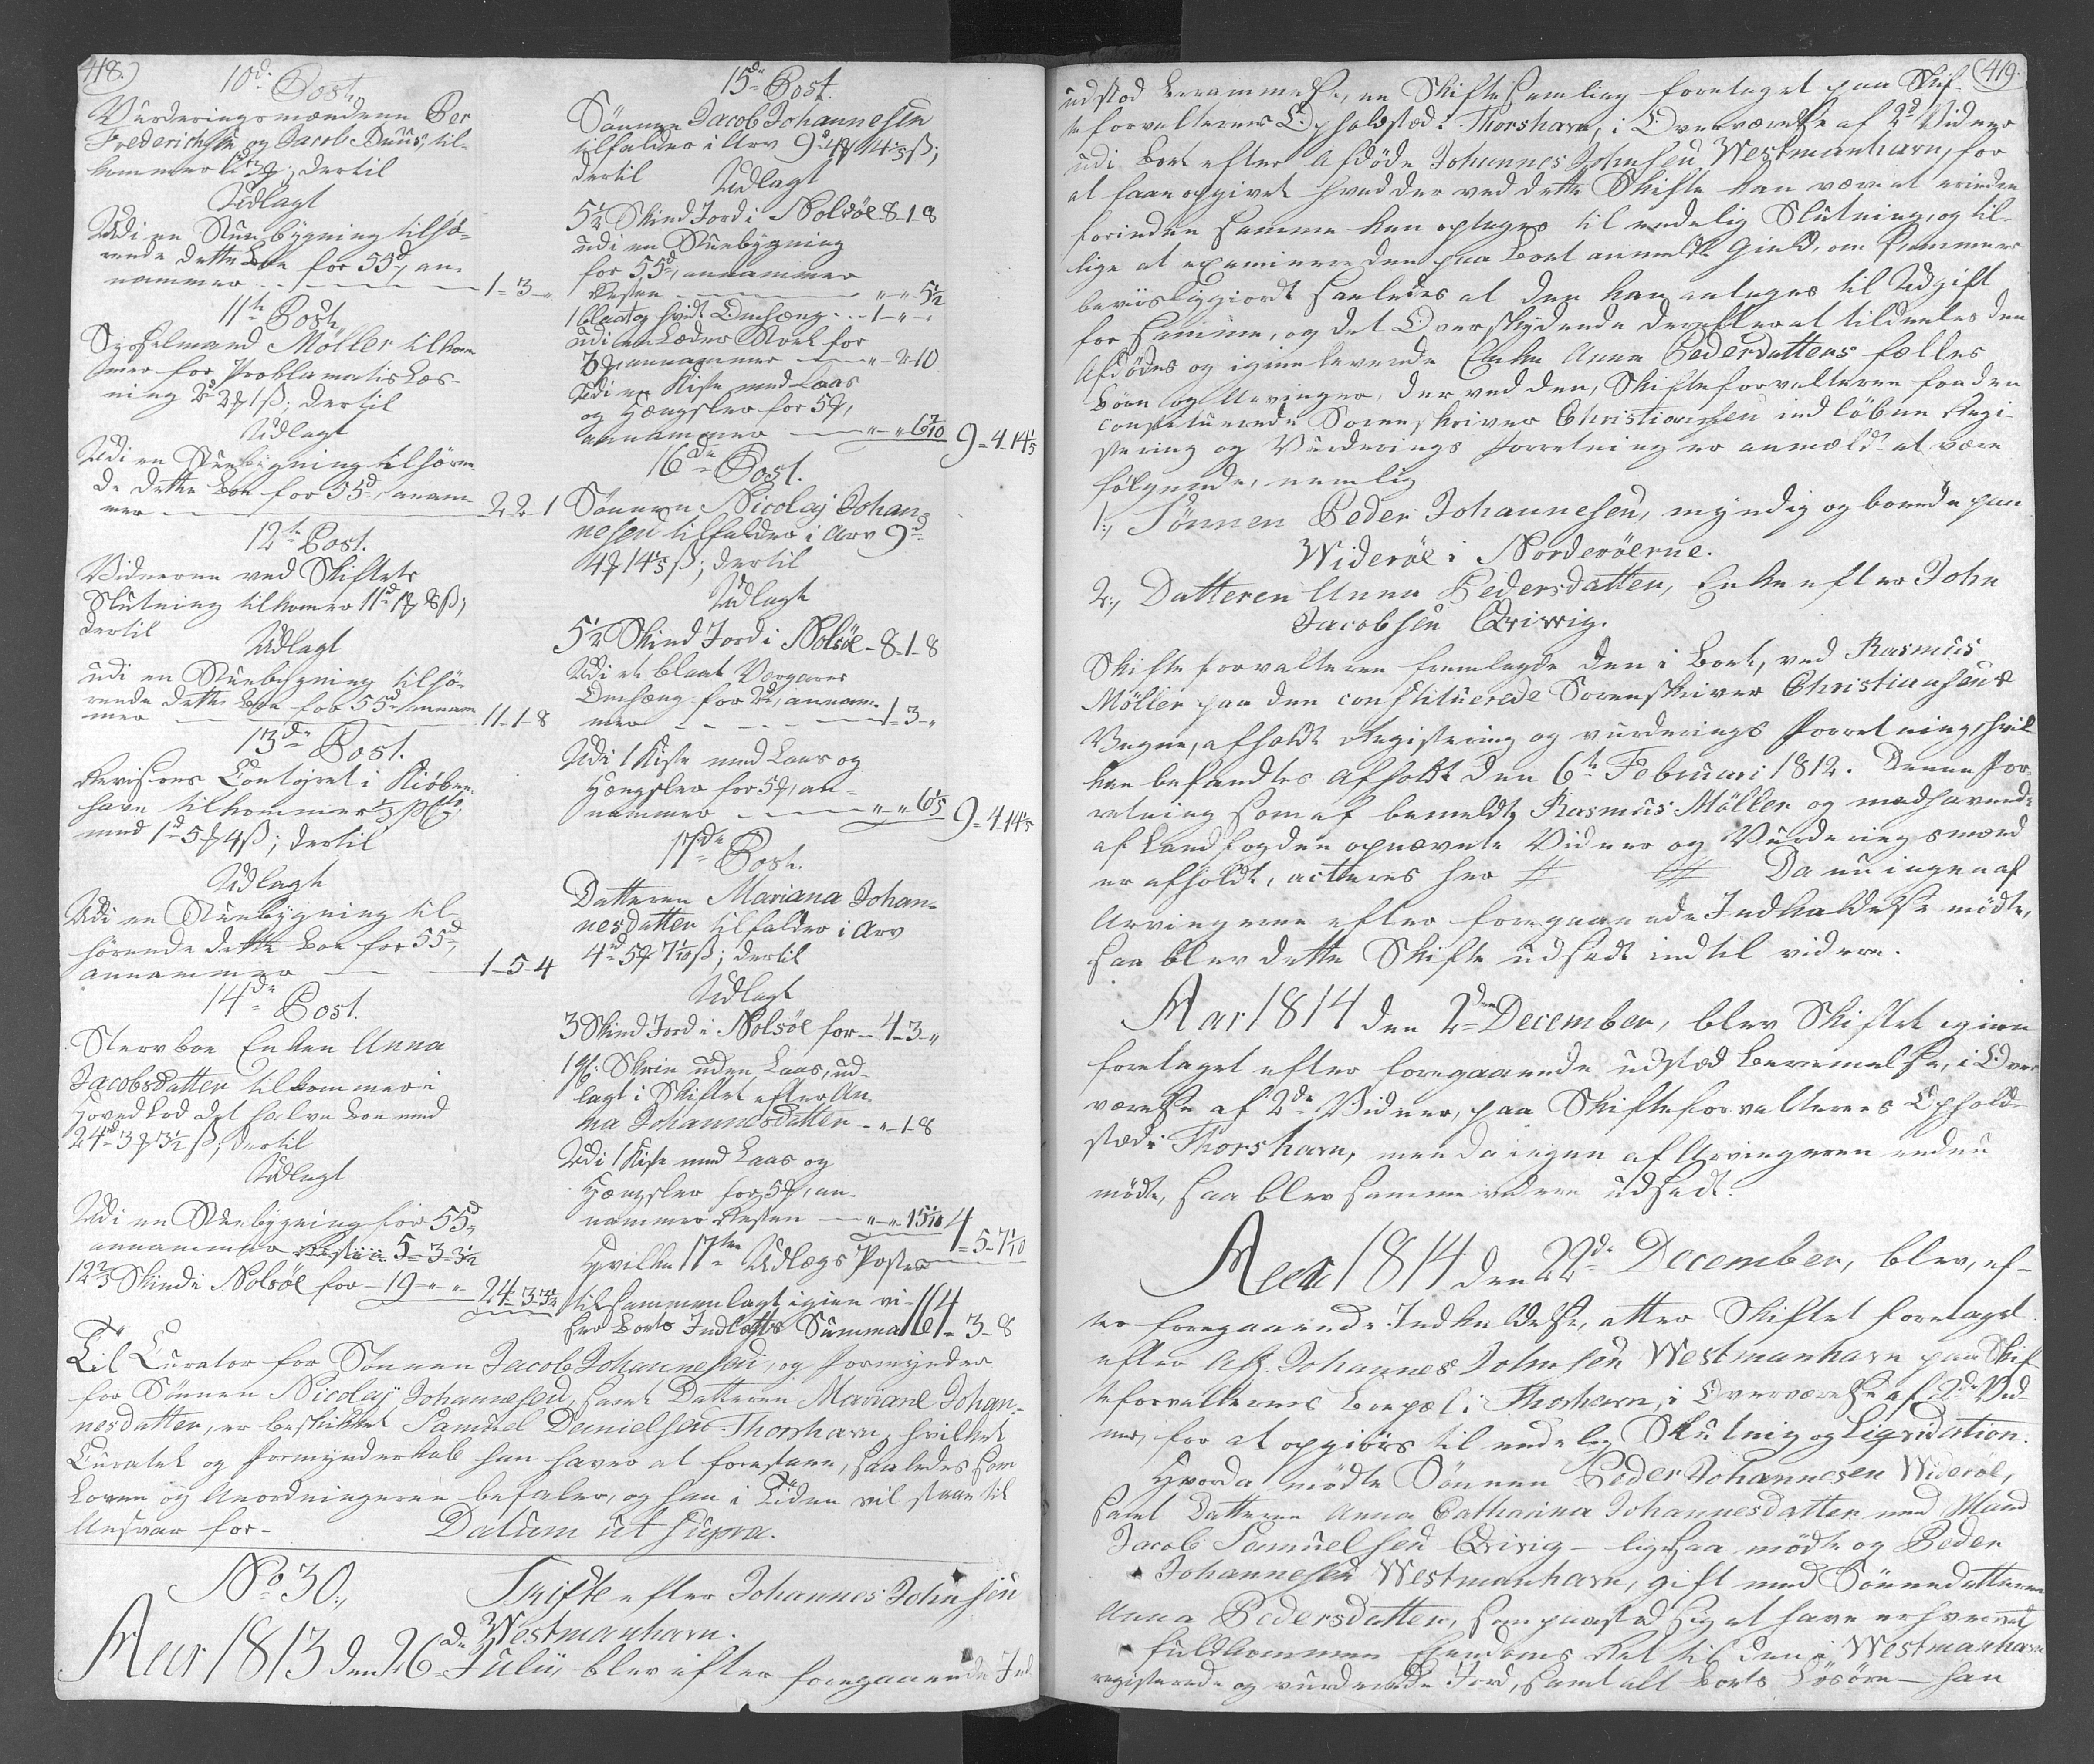 418.)
10de Post.
Vurderingsmændene Per
Frederichsen og Jacob Duus, til-
kommer 1d 3f; dertil
Udlagt
Udi en Stuebygning tilhø-
rende dette Boe for 55d, an-
nammer 1-3-"
11te Post.
Sysselmand Møller tilkom
mer for Proklamatis Læs-
ning 2d 2f 1ß; dertil
Udlagt
Udi en Stuebygning tilhøren-
de dette Boe for 55d, anam-
mer 2-2-1
12te Post.
Vidnerne ved Skiftets
Slutning tilkommer 11d 1f 8ß;
dertil
Udlagt
udi en Stuebygning tilhø-
rende dette Boe for 55d annam-
mer 11-1-8
13de Post.
Revisions Contoiret i Kiøben-
havn tilkommer
med 1d 5f 4ß; dertil
Udlagt
Udi en Stuebygning til-
hørende dette Boe for 55d,
annammer 1-5-4
14de Post.
Stervboe Enken Anna
Jacobsdatter tilkommer i
Hovedlod det halve Boe med
24d 3f 3½ß; dertil
Udlagt
Udi en Stuebygning for 55d,
annammer Resten 5-3-3½
12⅔ Skind i Nolsöe for 19-"-" 24-3-3½
15de Post.
Sønnen Jacob Johannesen
tilfalder i Arv 9d 4f 14⅕ß;
dertil Udlagt
5½ Skind Jord i Nolsöe 8-1-8
udi en Stuebygning
for 55d, annammer
Resten "-"-5½
1 blaat og hvidt Omhæng 1-"-"
udi en Læder Stoel for
3f annammer "-2-10
Udi en Kiste med Laas
og Hængsler for 5f,
annammer "-"-6 7/10 9-4-14⅕
16de Post.
Sønnen Nicolaj Johan-
nesen tilfalder i Arv 9d
4f 14⅕ß; dertil
Udlagt
5½ Skind Jord i Nolsöe 8-1-8
Udi et blaat Vargarns
Omhæng for 2d, annam-
mer 1-3-"
Udi 1 Kiste med Laas og
Hængsler for 5f, an-
nammer "-"-6⅕ 9-4-14⅕
17de Post.
Datteren Mariana Johan-
nesdatter tilfalder i Arv
4d 5f 7 1/10ß; dertil
Udlagt
3 Skind Jord i Nolsöe for 4-3-"
Skrin uden Laas, ud-
lagt i Skiftet efter An-
na Johannesdatter "-1-8
Udi 1 Kiste med Laas og
Hængsler for 5f, an-
nammer Resten "-"-15 1/10 4-5-7 1/10
Hvilke 17ten Udlægs Poster
tilsammenlagt igien vi-
ser Boets Indtægts Summa 164-3-8
Til Curator for Sønnen Jacob Johannesen, og Formynder
for Sønnen Nicolaj Johannesen, samt Datteren Mariane Johan-
nesdatter, er beskikket Samuel Danielsen Thorshavn, hvilket
Curatel og Formynderskab han haver at forestaae, saaledes som
Loven og Anordningerne befaler, og han i Tiden vil staae til
Ansvar for- Datum ut supra.
No 30., Skifte efter Johannes Johnsen
Westmanhavn.
Aar 1813 den 26de Julii blev efter foregaaende Ind
419.
udstæd Berammelse, en Skiftesamling foretaget paa Skif-
teforvalterens Opholdsted i Thorshavn, i Overværelse af 2de Vidner
udi Boet efter Afdøde Johannes Johnsen Westmanhavn, for
at faae opgivet hvad der ved dette Skifte kan være at erindre
forinden samme kan optages til endelig Slutning, og til-
lige at examinere den paa Boet anmeldte Gield, om kommer
beviisliggiordt saaledes at den kan antages til Udgift
for samme, og det Overskydende derefter at tildeeles den
Afdødes og igienlevende Enke Anna Pedersdatters fælles
Børn og Arvinger, der ved den, Skifteforvalteren fra den
constituerede Sorenskriver Christiansen indløbne Regi-
stering og Vurderings Forretning er anmeldt at være
følgende, nemlig
1., Sønnen Peder Johannesen, myndig og boende paa
Widerøe i Norderøerne.
2., Datteren Anna Pedersdatter, Enke efter John
Jacobsen Qvivig.
Skifteforvalteren fremlagde den i Boet, ved Rasmus
Möller paa den constituerede Sorenskriver Christiansens
Vegne, afholdt Registering og Vurderings Forretning, hvil-
ken befandtes afholdt den 6te Februari 1812. Denne For-
retning som af bemeldte Rasmus Möller og medhavende
af Landfogden opnævnte Vidner og Vurderingsmænd
er afholdt, acteres her # # Da nu ingen af
Arvingerne efter foregaaende Indkaldelse mødte,
saa blev dette Skifte udsadt indtil videre.
Aar 1814 den 2den December, blev Skiftet igien
foretaget efter foregaaende udstæd Berammelse, i Over
værelse af 2de Vidner, paa Skifteforvalterens Ophold-
sted i Thorshavn, men da ingen af Arvingerne endnu
mødte, saa blev samme videre udsadt.
Aar 1814 den 22de December, blev, ef-
ter foregaaende Indkaldelse, atter Skiftet foretaget
efter Afg. Johannes Johnsen Westmanhavn paa Skif
teforvalterens Boepæl i Thorshavn, i Overværelse af 2de Vid-
ner, for at opgiøres til endelig Slutning og Liqvidation.
Hvorda mødte Sønnen Peder Johannesen Widerøe,
samt Datteren Anna Catharina Johannesdatter med Mand
Jacob Samuelsen Qvivig - ligesaa mødte og Peder
Johannesen Westmanhavn, gift med Sønnedatteren
Anna Pedersdatter, som paastod sig at have erhvervet
fuldkommen Eiendoms Ret til den i Westmanhavn
registerede og vurderede Jord, samt alt Boets Løsøre - han